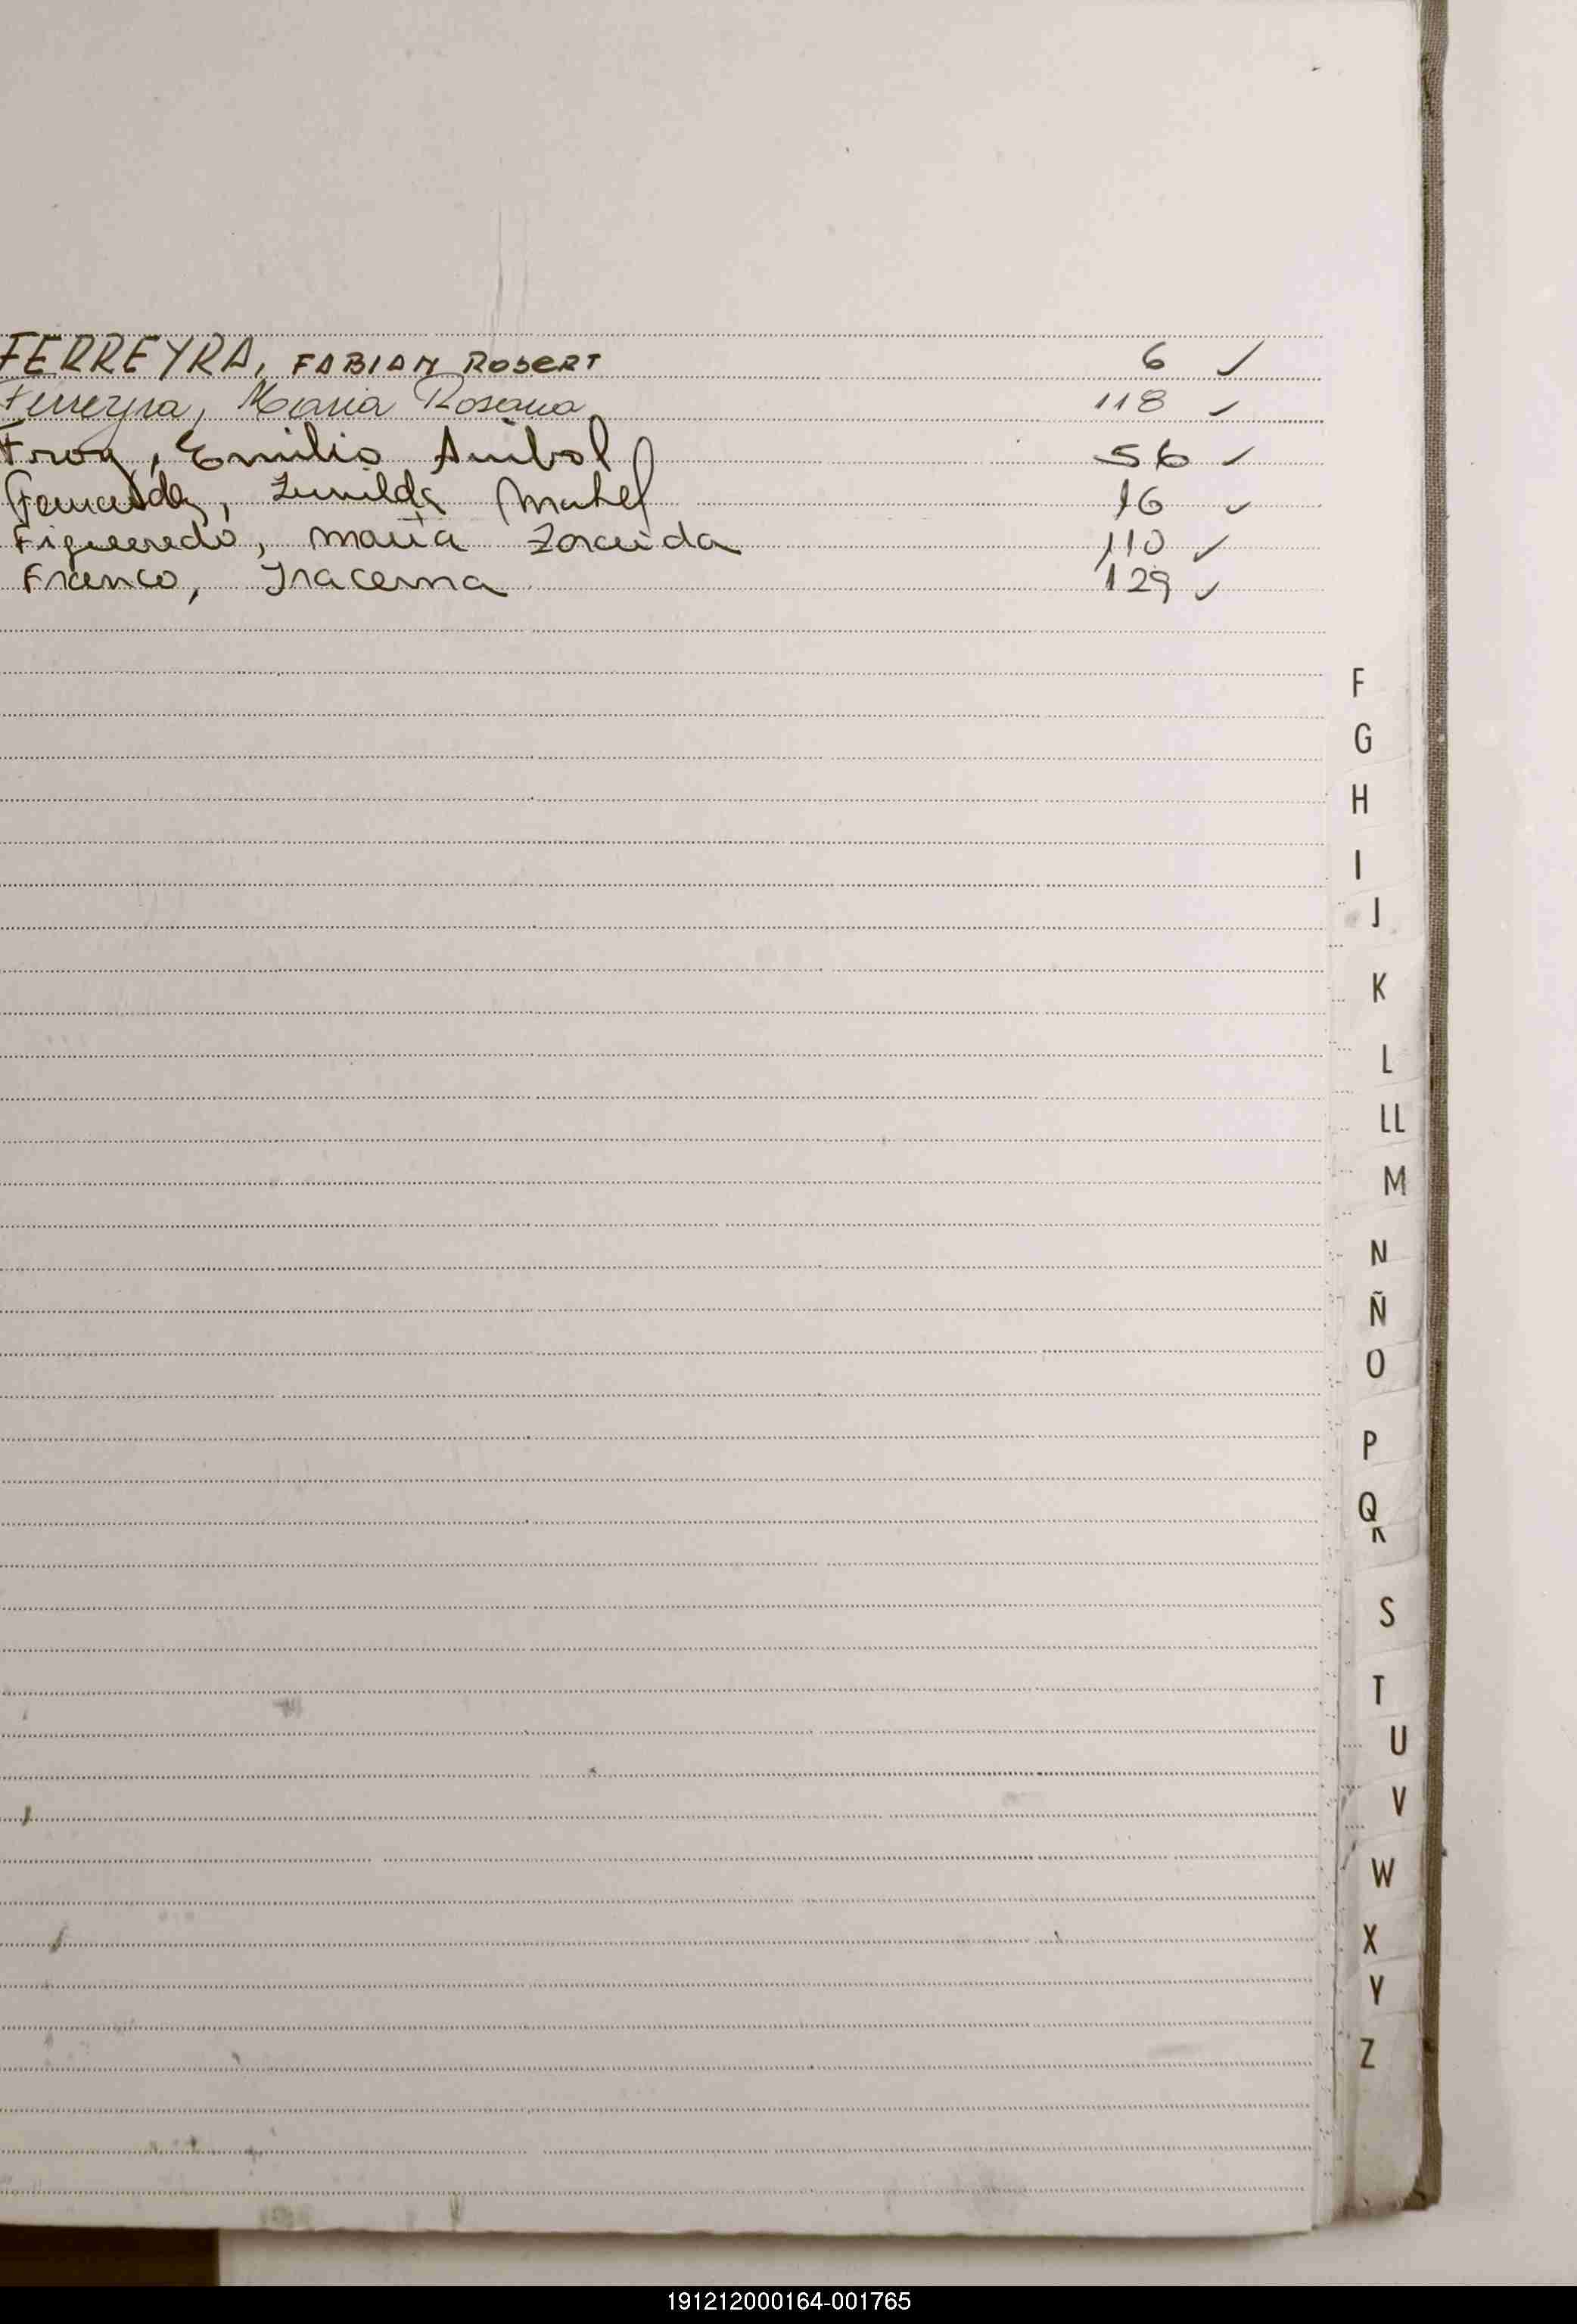 FERREYRA, FABIAN ROBERT 6 ✓
Ferreyra, Maria Rosana 118 ✓
Froy, Emilio Anibal 56 ✓
Fernandez, Zunilda Mabel 16 ✓
Figueredo, Maria Zoraida 110 ✓
Franco, Iracema 129 ✓
F
G
H
I
J
K
L
LL
M
N
Ñ
O
P
Q
S
T
U
V
W
X
Y
Z
191212000164-001765